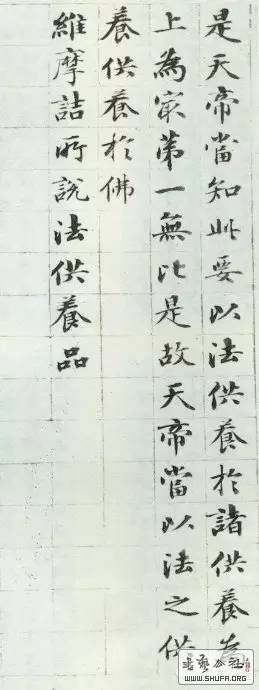 是天帝當知此要以法供養於諸供養為
上為寂第一無比是故天帝當以法之供
養供養於佛
維摩詰所說法供養品
WWW.SHUFA.ORG